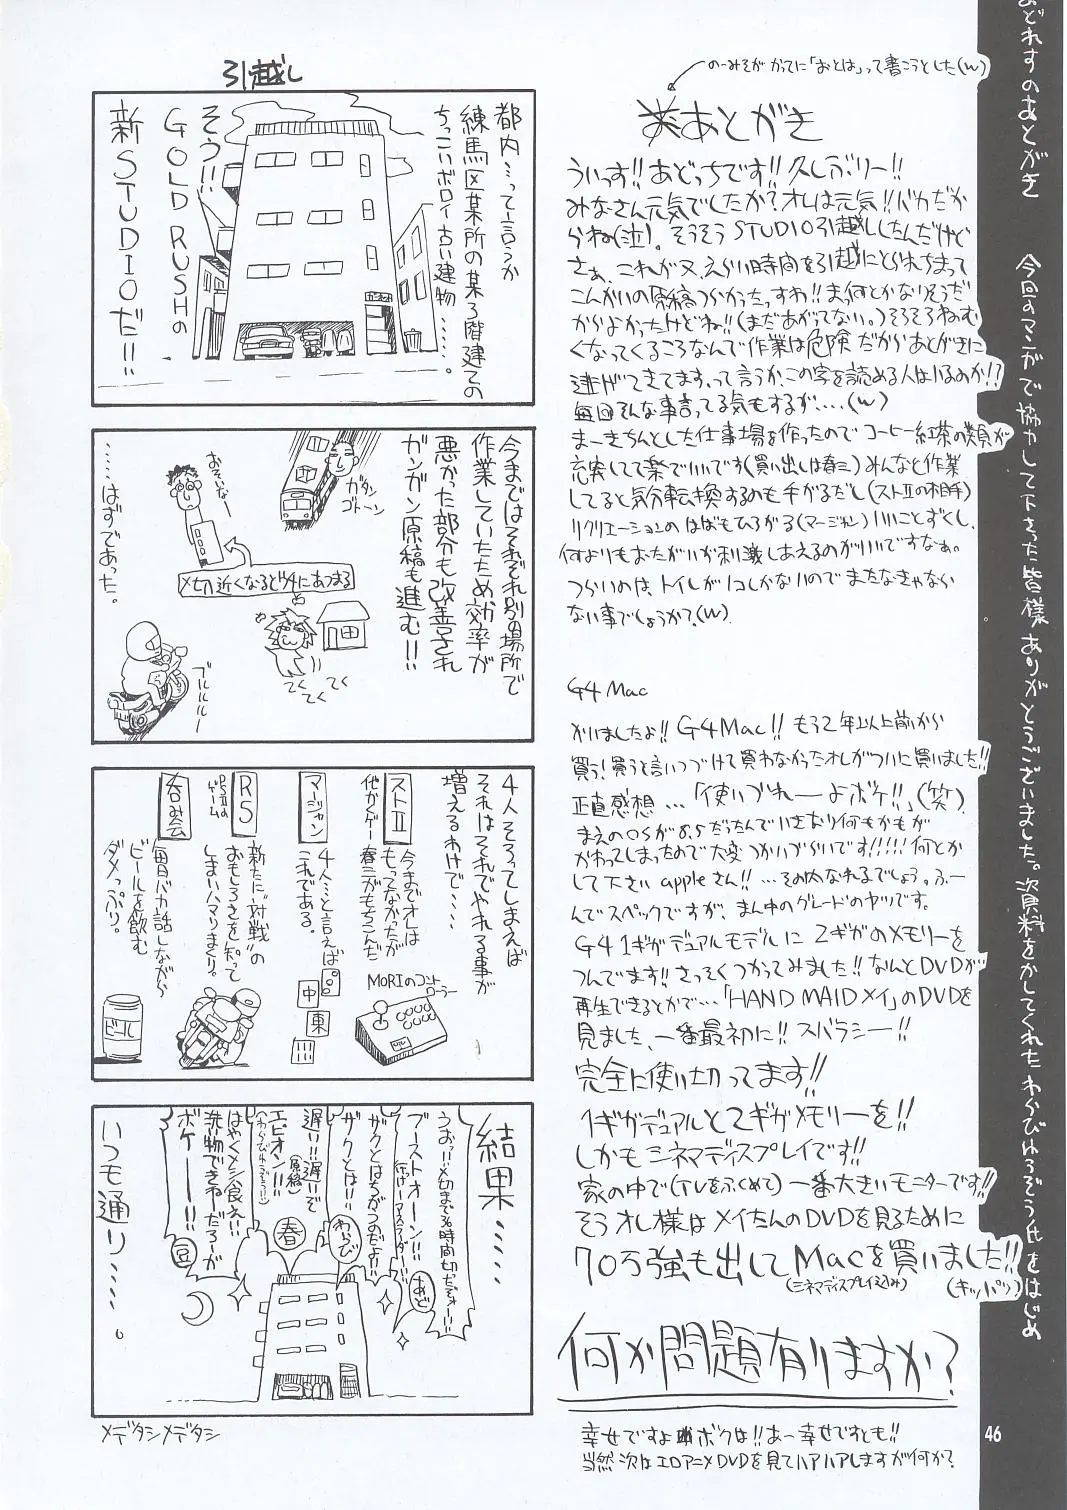 おどれすのあとがき　今回のマンガで協力して下さった皆様ありがとうございました。資料をかしてくれたわらびれろぞう氏をはじめ
のーみそが かってに「おとは」って書こうとした(w)
あとがき
ういっす!!あどっちです!!久しぶりー!!
みなさん元気でしたか?オレは元気!!バカだか
らね(泣)。そうそうSTUDIO引越ししたんだけど
さぁ、これが又、えらい時間を引越にとられちまって
こんかいの原稿つらかったっすわ!!まぁ何とかなりそうだ
からよかったけどね!!(まだあがってない。)そろそろねむ
くなってくるころなんで作業は危険だからあとがきに
逃げてきてます。って言うか、この字を読める人はいるのか!?
毎回そんな事言ってる気もするが....(w)
まーきちんとした仕事場を作ったのでコーヒー紅茶の類が
充実してて楽でいいです(買い出しは春三)みんなと作業
してると気分転換するのも手がるだし(ストⅡの相手)
リクリエーションのはばもひろがる(マージャン)いいことずくし、
何よりもおたがいが刺激しあえるのがいいですなぁ。
つらいのは、トイレが1コしかないのでまたなきゃなら
ない事でしょうか?(w)
G4 Mac
かいましたよ!!G4Mac!!もう2年以上前から
買う!買うと言いつづけて買わなかったオレがついに買いました!!
正直感想...「使いづれーよボケ!!」(笑)
まえのOSが8.5だったんでいきなり何もかもが
かわってしまったので大変つかいづらいです!!!!!何とか
して下さいappleさん!!...その内なれるでしょう。ふー
んでスペックですが、まん中のグレードのヤツです。
G4 1ギガデュアルモデルに2ギガのメモリーを
つんでます!!さっそくつかってみました!!なんとDVDが
再生できるとかで...「HAND MAIDメイ」のDVDを
見ました、一番最初に!!スバラシー!!
完全に使い切ってます!!
1ギガデュアルと2ギガメモリーを!!
しかもシネマディスプレイです!!
家の中で(TVをふくめて)一番大きいモニターです!!
そうオレ様はメイたんのDVDを見るために
70万強も出してMacを買いました!!
(シネマディスプレイ込み)
(キッパリ)
何か問題有りますか?
幸せですよボクは!!あー幸せですとも!!
当然次はエロアニメDVDを見てハアハアしますが何か?
46
引越し
都内...って言うか
練馬区某所の某3階建ての
ちっこいボロイ古い建物......。
そう!!
GOLD RUSHの
新STUDIOだ!!
今まではそれぞれ別の場所で
作業していたため効率が
悪かった部分も改善され
ガンガン原稿も進む!!
ガタン
ゴトーン
おそいなー
〆切近くなるとココにあつまる
てくてくてく
ブルルルルー
......はずであった。
4人そろってしまえば
それはそれでやれる事が
増えるわけで....
ストⅡ
他かくゲー
今までオレは
もってなかったが
春三がもちこんだ
MORIのコントローラー
マージャン
4人...と言えば
これである。
中
東
RS
PSⅡの
ゲーム
新たに“対戦”の
おもしろさを知って
しまいハマりまくり。
呑み会
毎日バカ話しながら
ビールを飲む
ダメっぷり。
ビール
結果.....
うおっ!!〆切まで36時間切ったぞォー!!
あど
ブーストオーン!!
ザクとはちがうのだよ!!
ザクとは!!
わらび
遅い!!遅いぞ
エピオン!!
(原稿)
春
はやくメシ食え!!
洗い物できねーだろーが
ボケーー!!
豆
いつも通り.....。
メデタシメデタシ